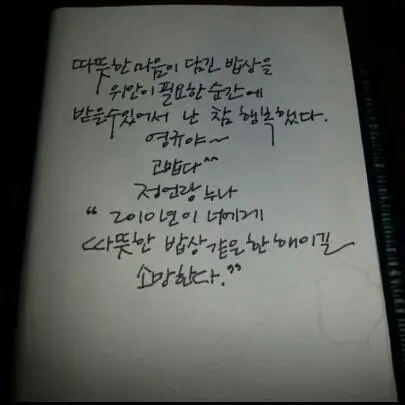 따뜻한 마음이 담긴 밥상을
위안이 필요한 순간에
받을수있어서 난 참 행복했다.
영규야~
고맙다^^
정연랑 누나
"2010년이 너에게
따뜻한 밥상같은 한해이길
소망한다."